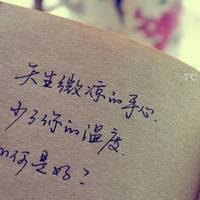 天生微凉的手心.
少了你的温度.
如何是好?
7℃